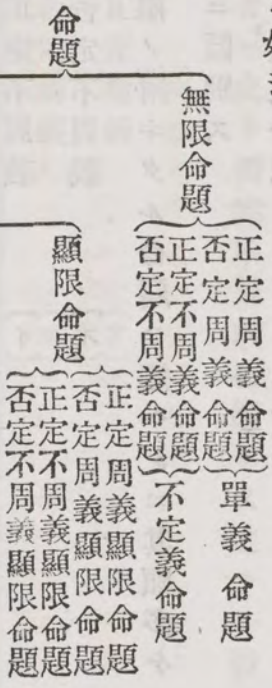 命題
無限命題
正定周義命題
否定周義命題
單義命題
正定不周義命題
否定不周義命題
不定義命題
顯限命題
正定周義顯限命題
否定周義顯限命題
正定不周義顯限命題
否定不周義顯限命題